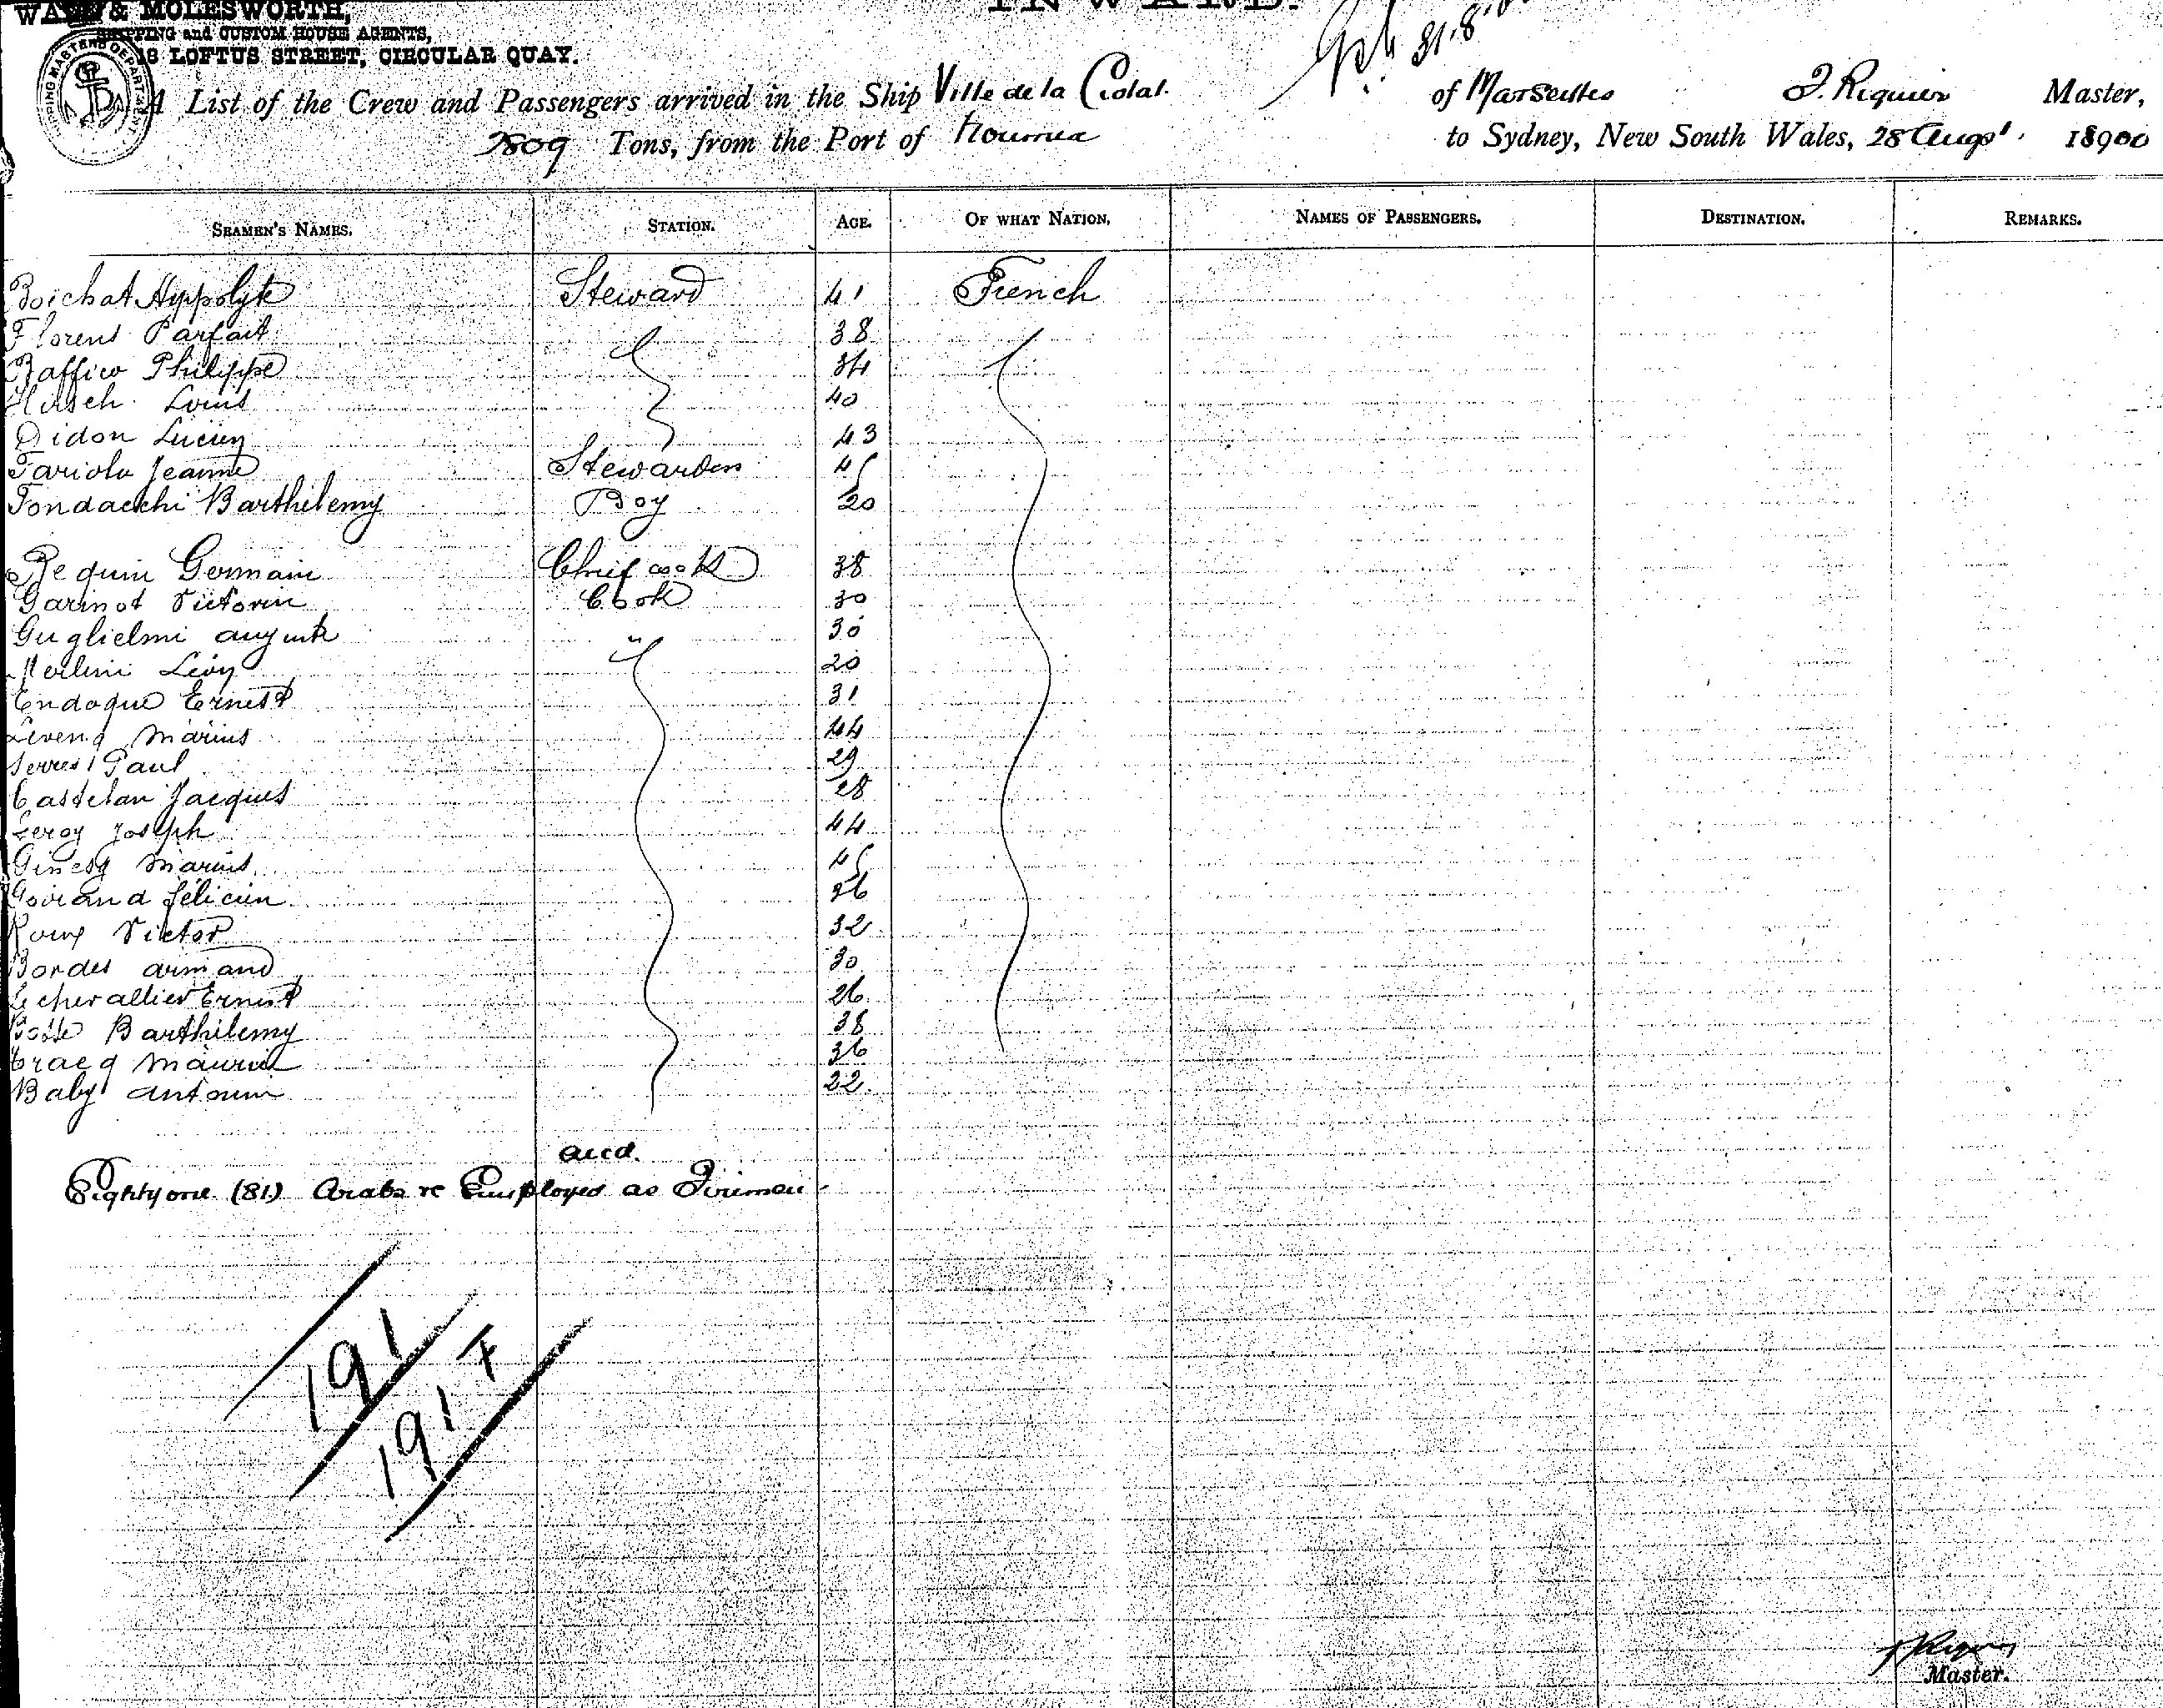 INWARD.
& MOLESWORTH,
SHIPPING and CUSTOM HOUSE AGENTS,
LOFTUS STREET, CIRCULAR QUAY.
31.8.
A List of the Crew and Passengers arrived in the Ship Ville de la Ciotat. of Marseilles Riquier Master,
2809 Tons, from the Port of Noumea to Sydney, New South Wales, 28 Augst. 18900
SEAMEN'S NAMES. STATION. AGE. OF WHAT NATION. NAMES OF PASSENGERS. DESTINATION. REMARKS.
Boichat Hyppolyte Steward 41 French
Florens Parfait 38
Baffico Philippe 34
Hirsch Louis 40
Didon Lucien 43
Fariola Jeanne Stewardess 45
Fondacchi Barthelemy Boy 20
Pequin Germain Chief cook 38
Garinot Victorin Cook 30
Guglielmi auguste " 30
Léon 20
Endoque Ernest 31
Marius 44
Serres Paul 29
Castelan Jacques 28
Leroy Joseph 44
Ginesy Marius 45
Goirand félicien 26
Roux Victor 32
Bordes armand 30
Lechevallier Ernest 26
Barthélemy 38
Maurice 36
Baby antonin 22
and.
Eighty one (81) Arabs Employed as Firemen
191
191 +
Master.